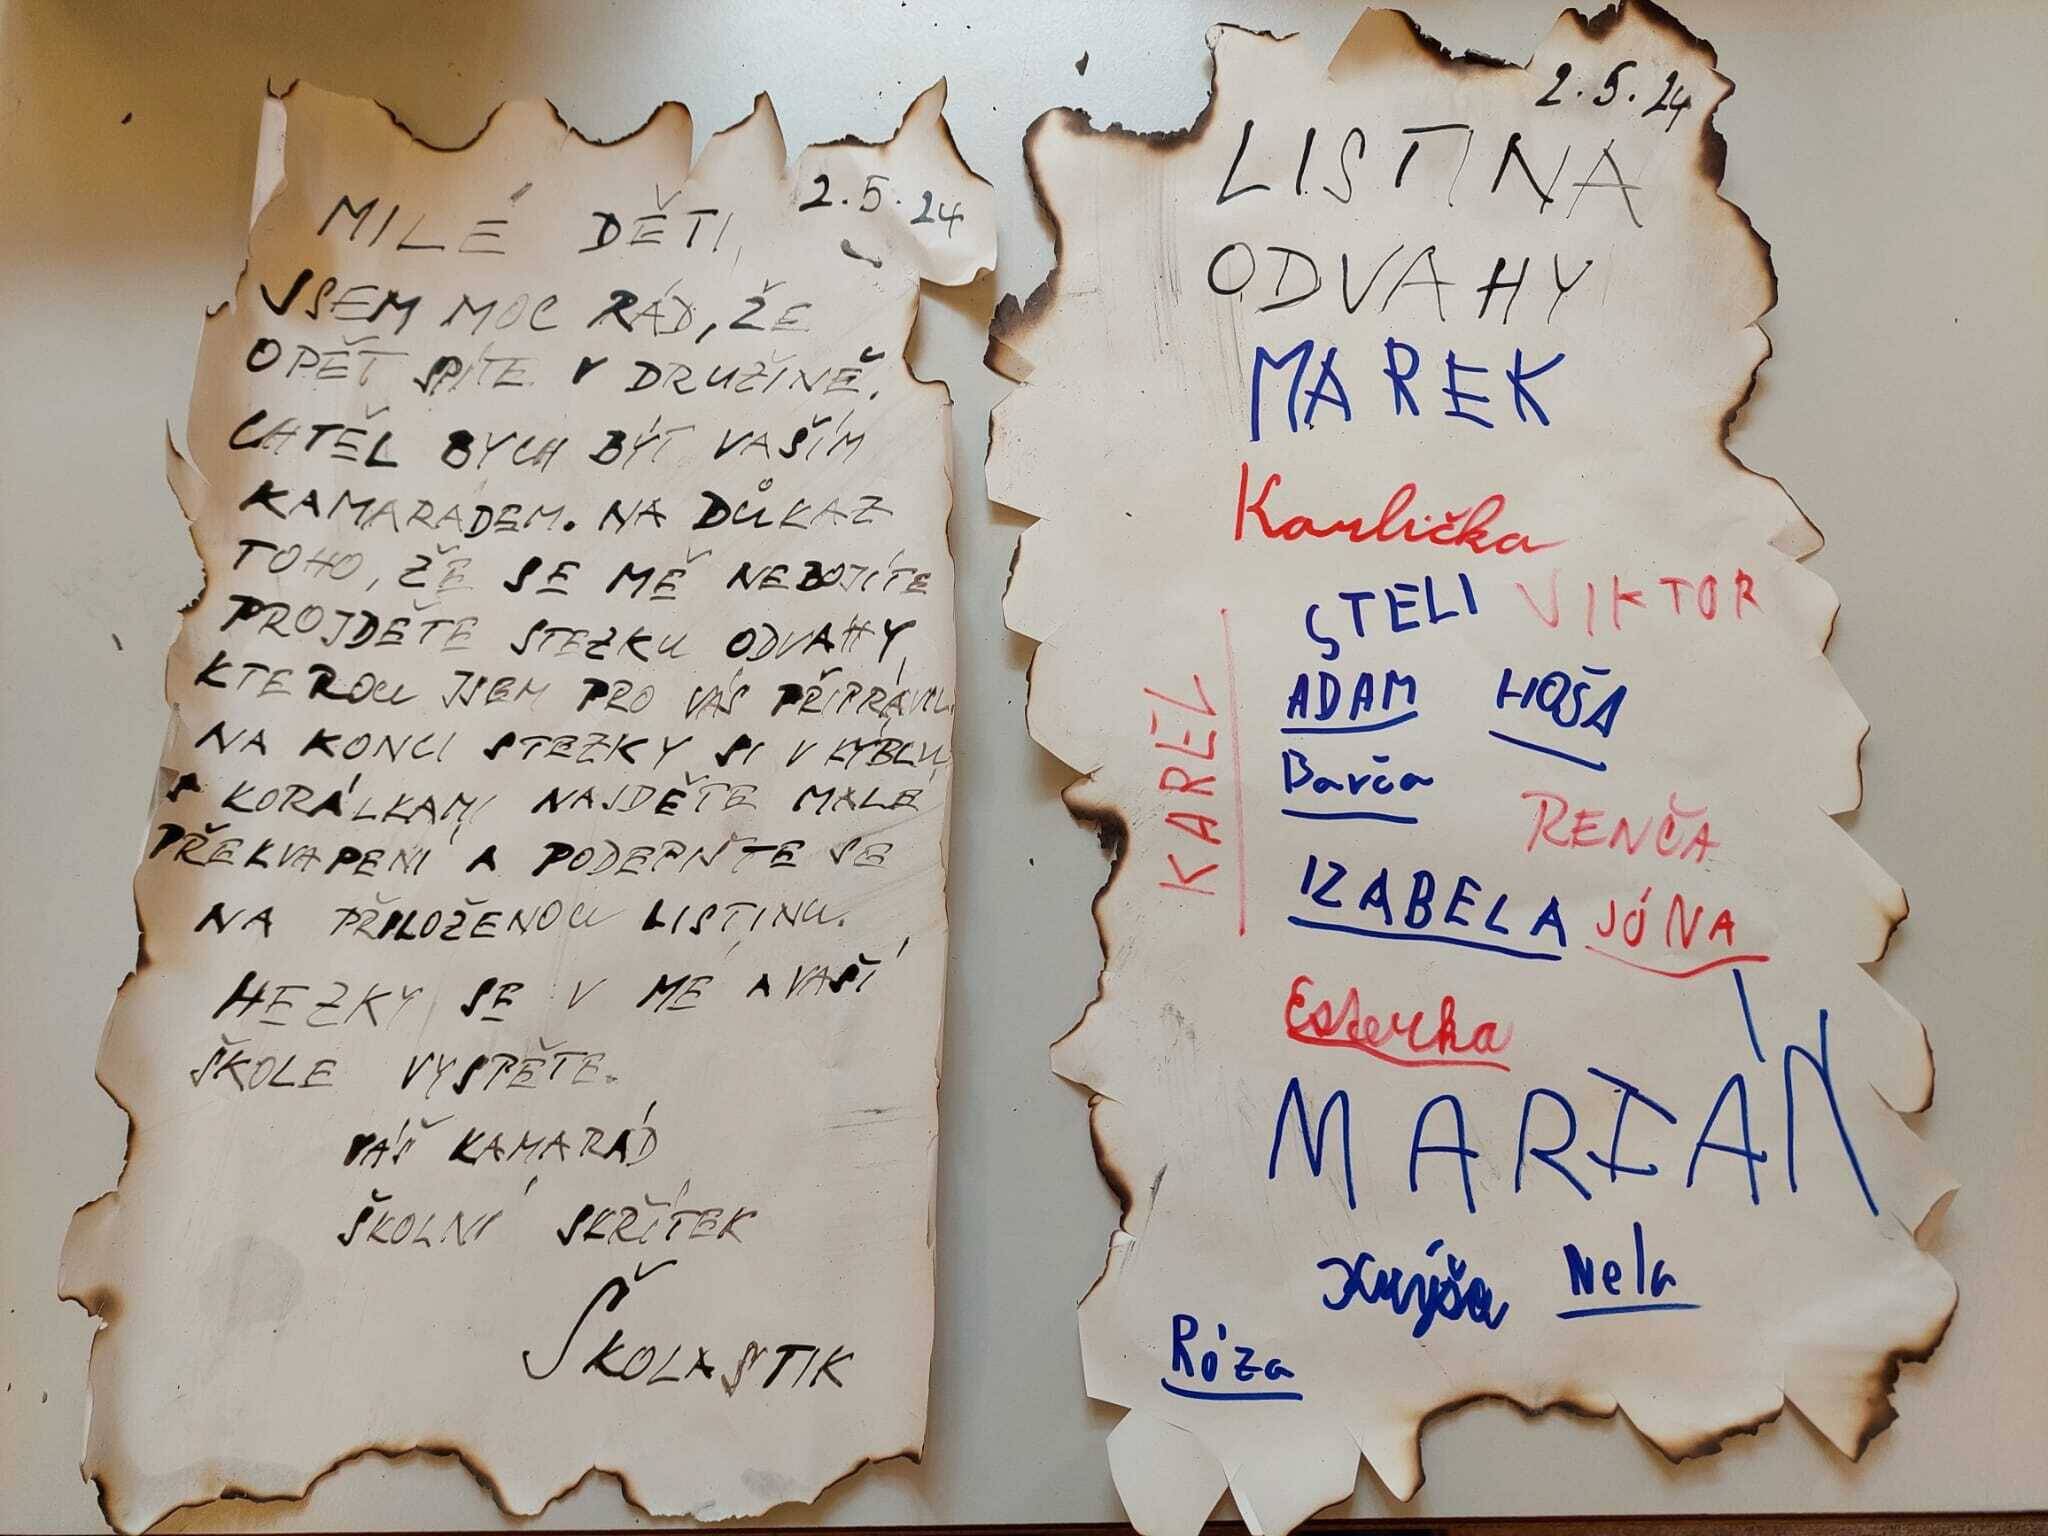 2.5.24
MILÉ DĚTI,
JSEM MOC RÁD, ŽE
OPĚT SPÍTE V DRUŽINĚ.
CHTĚL BYCH BÝT VAŠÍM
KAMARÁDEM. NA DŮKAZ
TOHO, ŽE SE MĚ NEBOJÍTE
PROJDĚTE STEZKU ODVAHY,
KTEROU JSEM PRO VÁS PŘIPRAVIL.
NA KONCI STEZKY SI V KÝBLU
S KORÁLKAMI NAJDĚTE MALÉ
PŘEKVAPENÍ A PODEPIŠTE SE
NA PŘILOŽENOU LISTINU.
HEZKY SE V MÉ A VAŠÍ
ŠKOLE VYSPĚTE.
VÁŠ KAMARÁD
ŠKOLNÍ SKŘÍTEK
ŠKOLASTIK
2.5.24
LISTINA
ODVAHY
MAREK
Karlička
STELI VIKTOR
KAREL
ADAM HOŠA
Barča
RENČA
IZABELA JÓNA
Esterka
MARIÁN
Nela
Róza